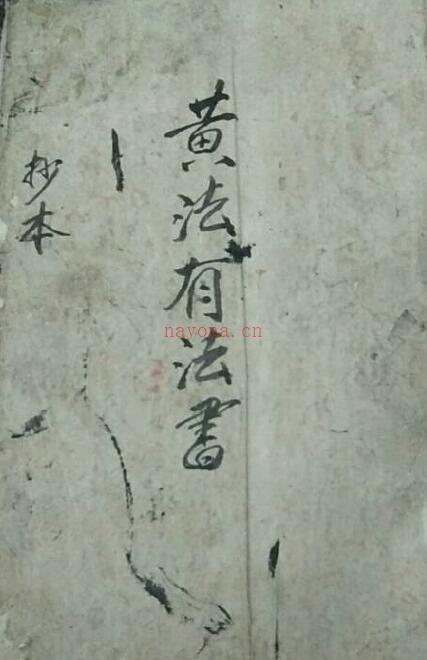 黄法有法書
抄本
nayona.cn